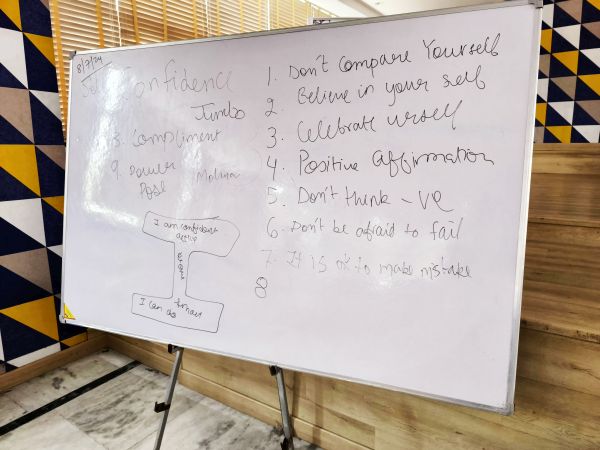 8/7/24
Self Confidence
Jumbo
8. Compliment
9. Power Pose
I am confident
I can do
1. Don't Compare Yourself
2. Believe in your self
3. Celebrate urself
4. Positive affirmation
5. Don't think -ve
6. Don't be afraid to fail
7. It is ok to make mistake
8